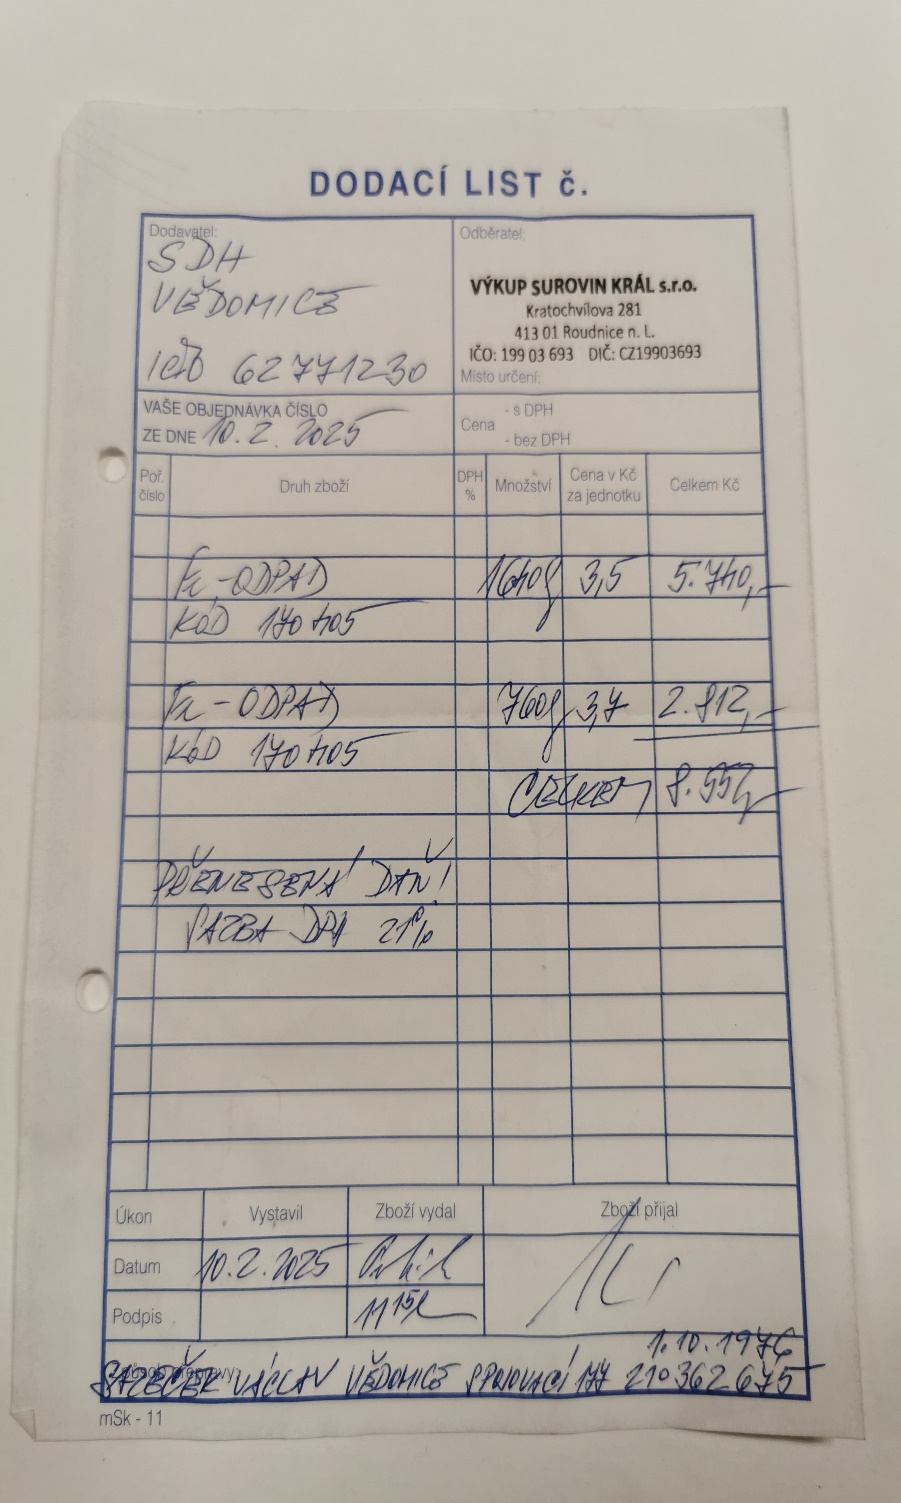 DODACÍ LIST č.
Dodavatel:
SDH
VĚDOMICE
IČO 62771230
Odběratel:
VÝKUP SUROVIN KRÁL s.r.o.
Kratochvílova 281
413 01 Roudnice n. L.
IČO: 199 03 693 DIČ: CZ19903693
Místo určení:
VAŠE OBJEDNÁVKA ČÍSLO
ZE DNE 10.2.2025
Cena
- s DPH
- bez DPH
Poř. číslo Druh zboží DPH % Množství Cena v Kč za jednotku Celkem Kč
Fe-ODPAD 1640 3,5 5.740,-
KÓD 170405
Fe-ODPAD 760 3,7 2.812,-
KÓD 170405
CELKEM 8.552,-
PŘENESENÁ DAŇ!
SAZBA DPH 21%
Úkon Vystavil Zboží vydal Zboží přijal
Datum 10.2.2025
Podpis
1.10.1976
Způsob přepravy:
VÁCLAV VĚDOMICE SPOJOVACÍ 177 210362675
mSk - 11